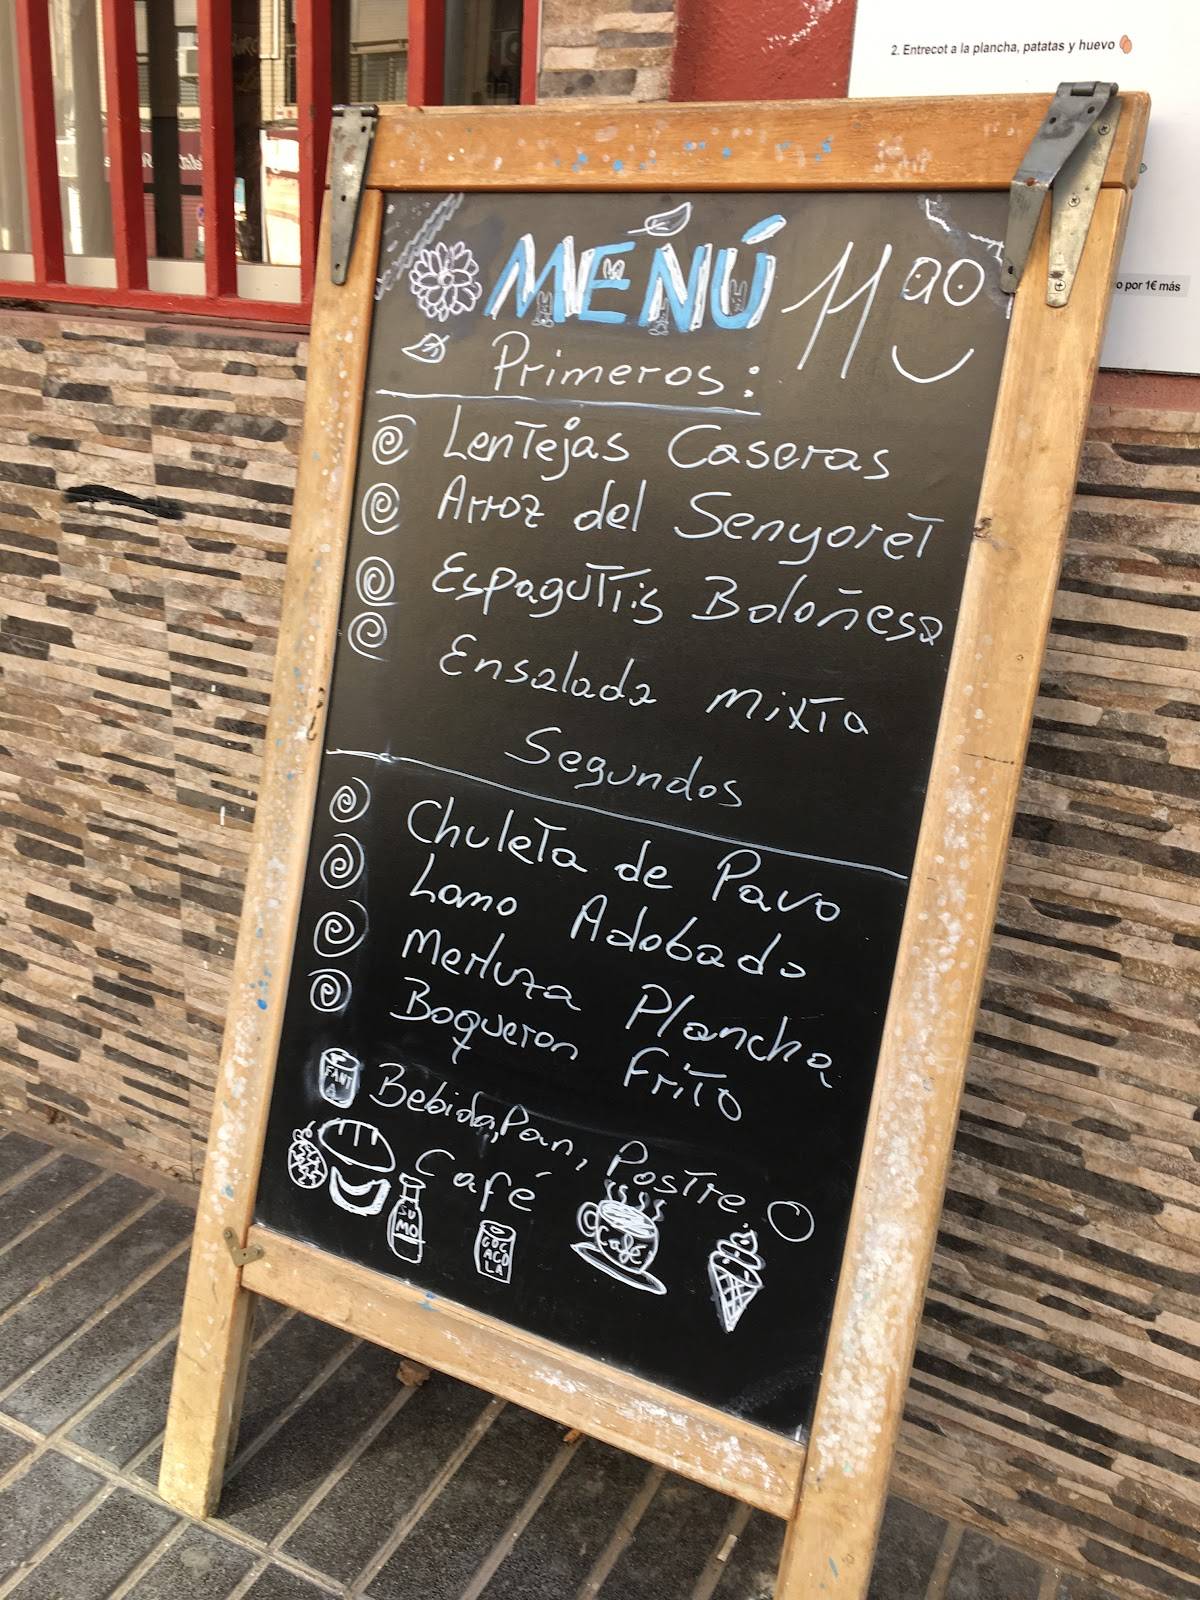 2. Entrecot a la plancha, patatas y huevo
o por 1€ más
MEÑÚ 11,90
Primeros:
Lentejas Caseras
Arroz del Senyoret
Espaguttis Boloñesa
Ensalada mixta
Segundos
Chuleta de Pavo
Lomo Adobado
Merluza Plancha
Boqueron Frito
Bebida, Pan, Postre O
Café
FANTA
SUMO
COCACOLA
Café